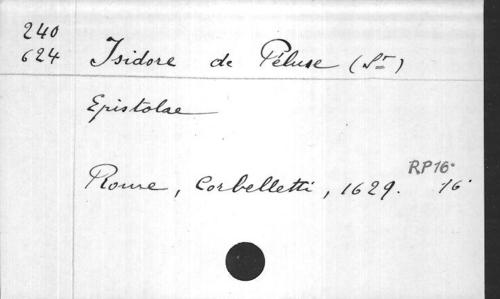 240
624 Isidore de Péluse (St)
Epistolae
RP16.
Rome, Corbelletti, 1629. 16.